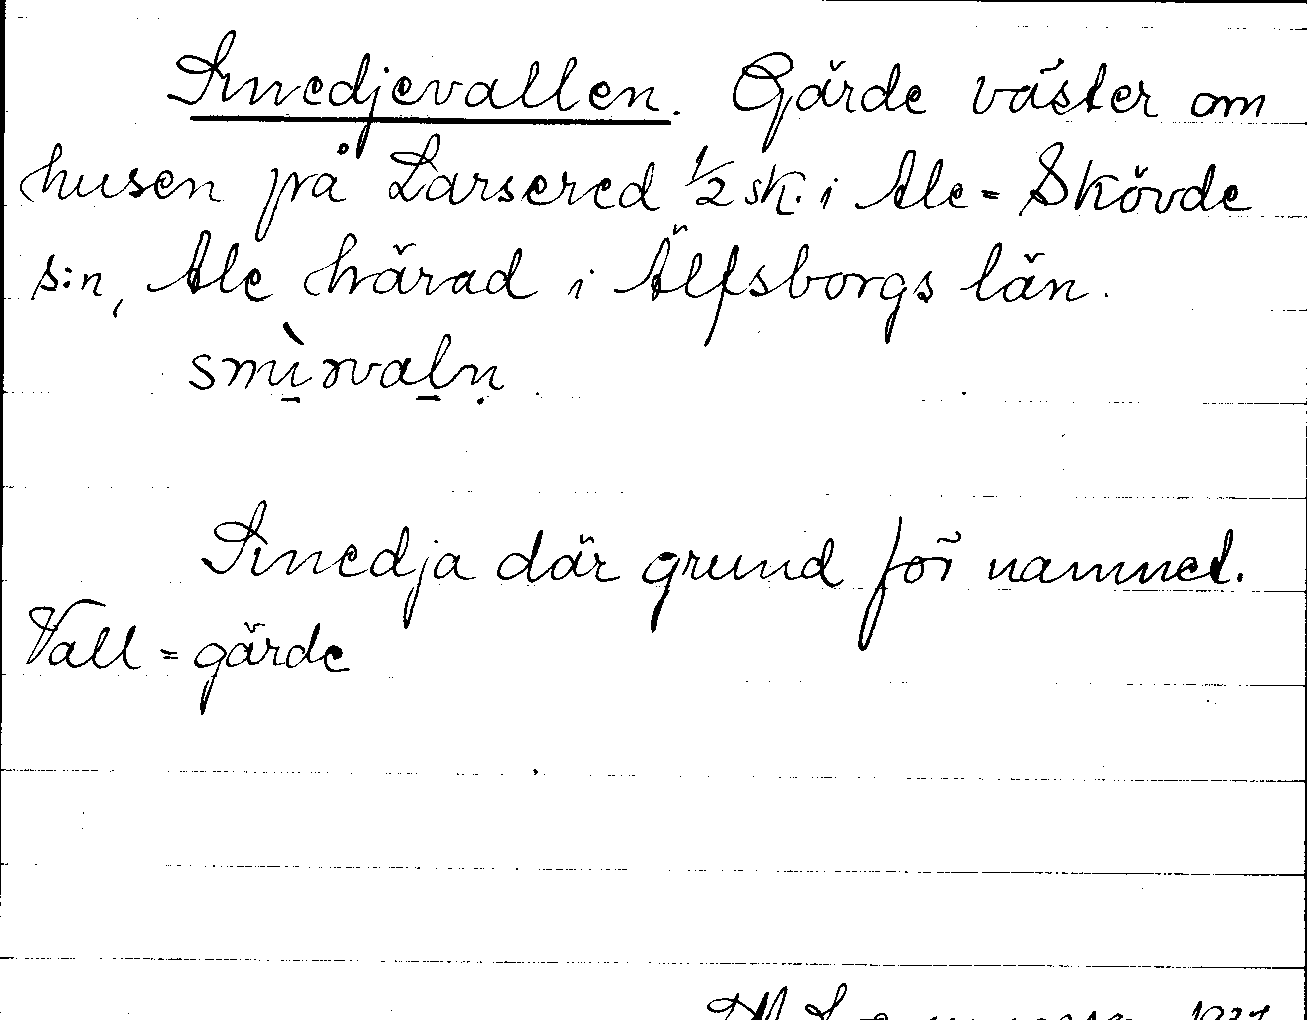 Smedjevallen. Gärde väster om
husen på Larsered 1/2 sk. i Ale=Skövde
s:n, Ale härad i Älfsborgs län.
smìrvaln
Smedja där grund för namnet.
Vall = gärde